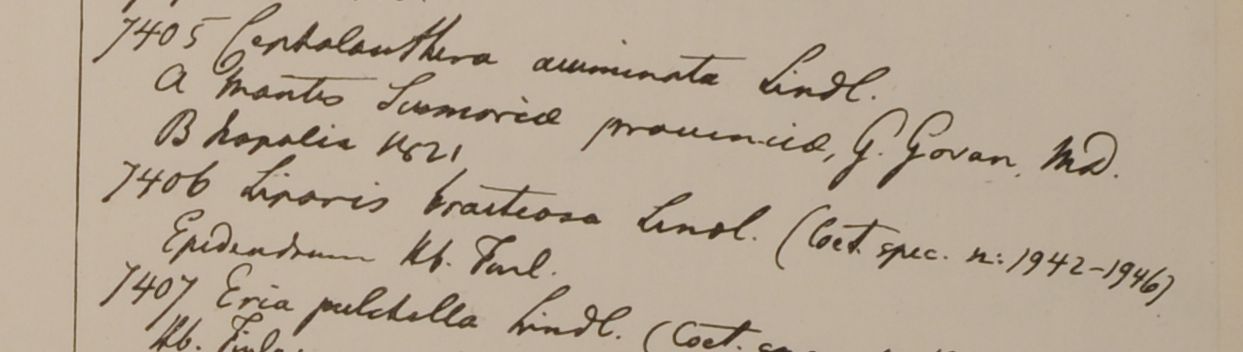 7405 Cephalanthera acuminata Lindl.
A Montis Sirmoriæ provinciæ, G. Govan, Md.
B Napalia 1821
7406 Liparis bracteosa Lindl. (Coet. spec. n: 1942-1946)
Epidendrum Hb. Finl.
7407 Eria pulchella Lindl. (Coet.
Hb. Finl.